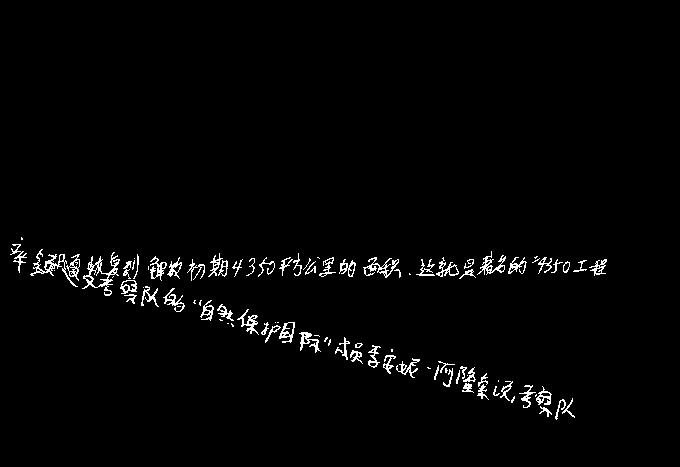 恢复到解放初期4350平方公里的面积.这就是著名的"4350工程
考察队的"自然保护国际"成员李安妮·阿隆索说,考察队